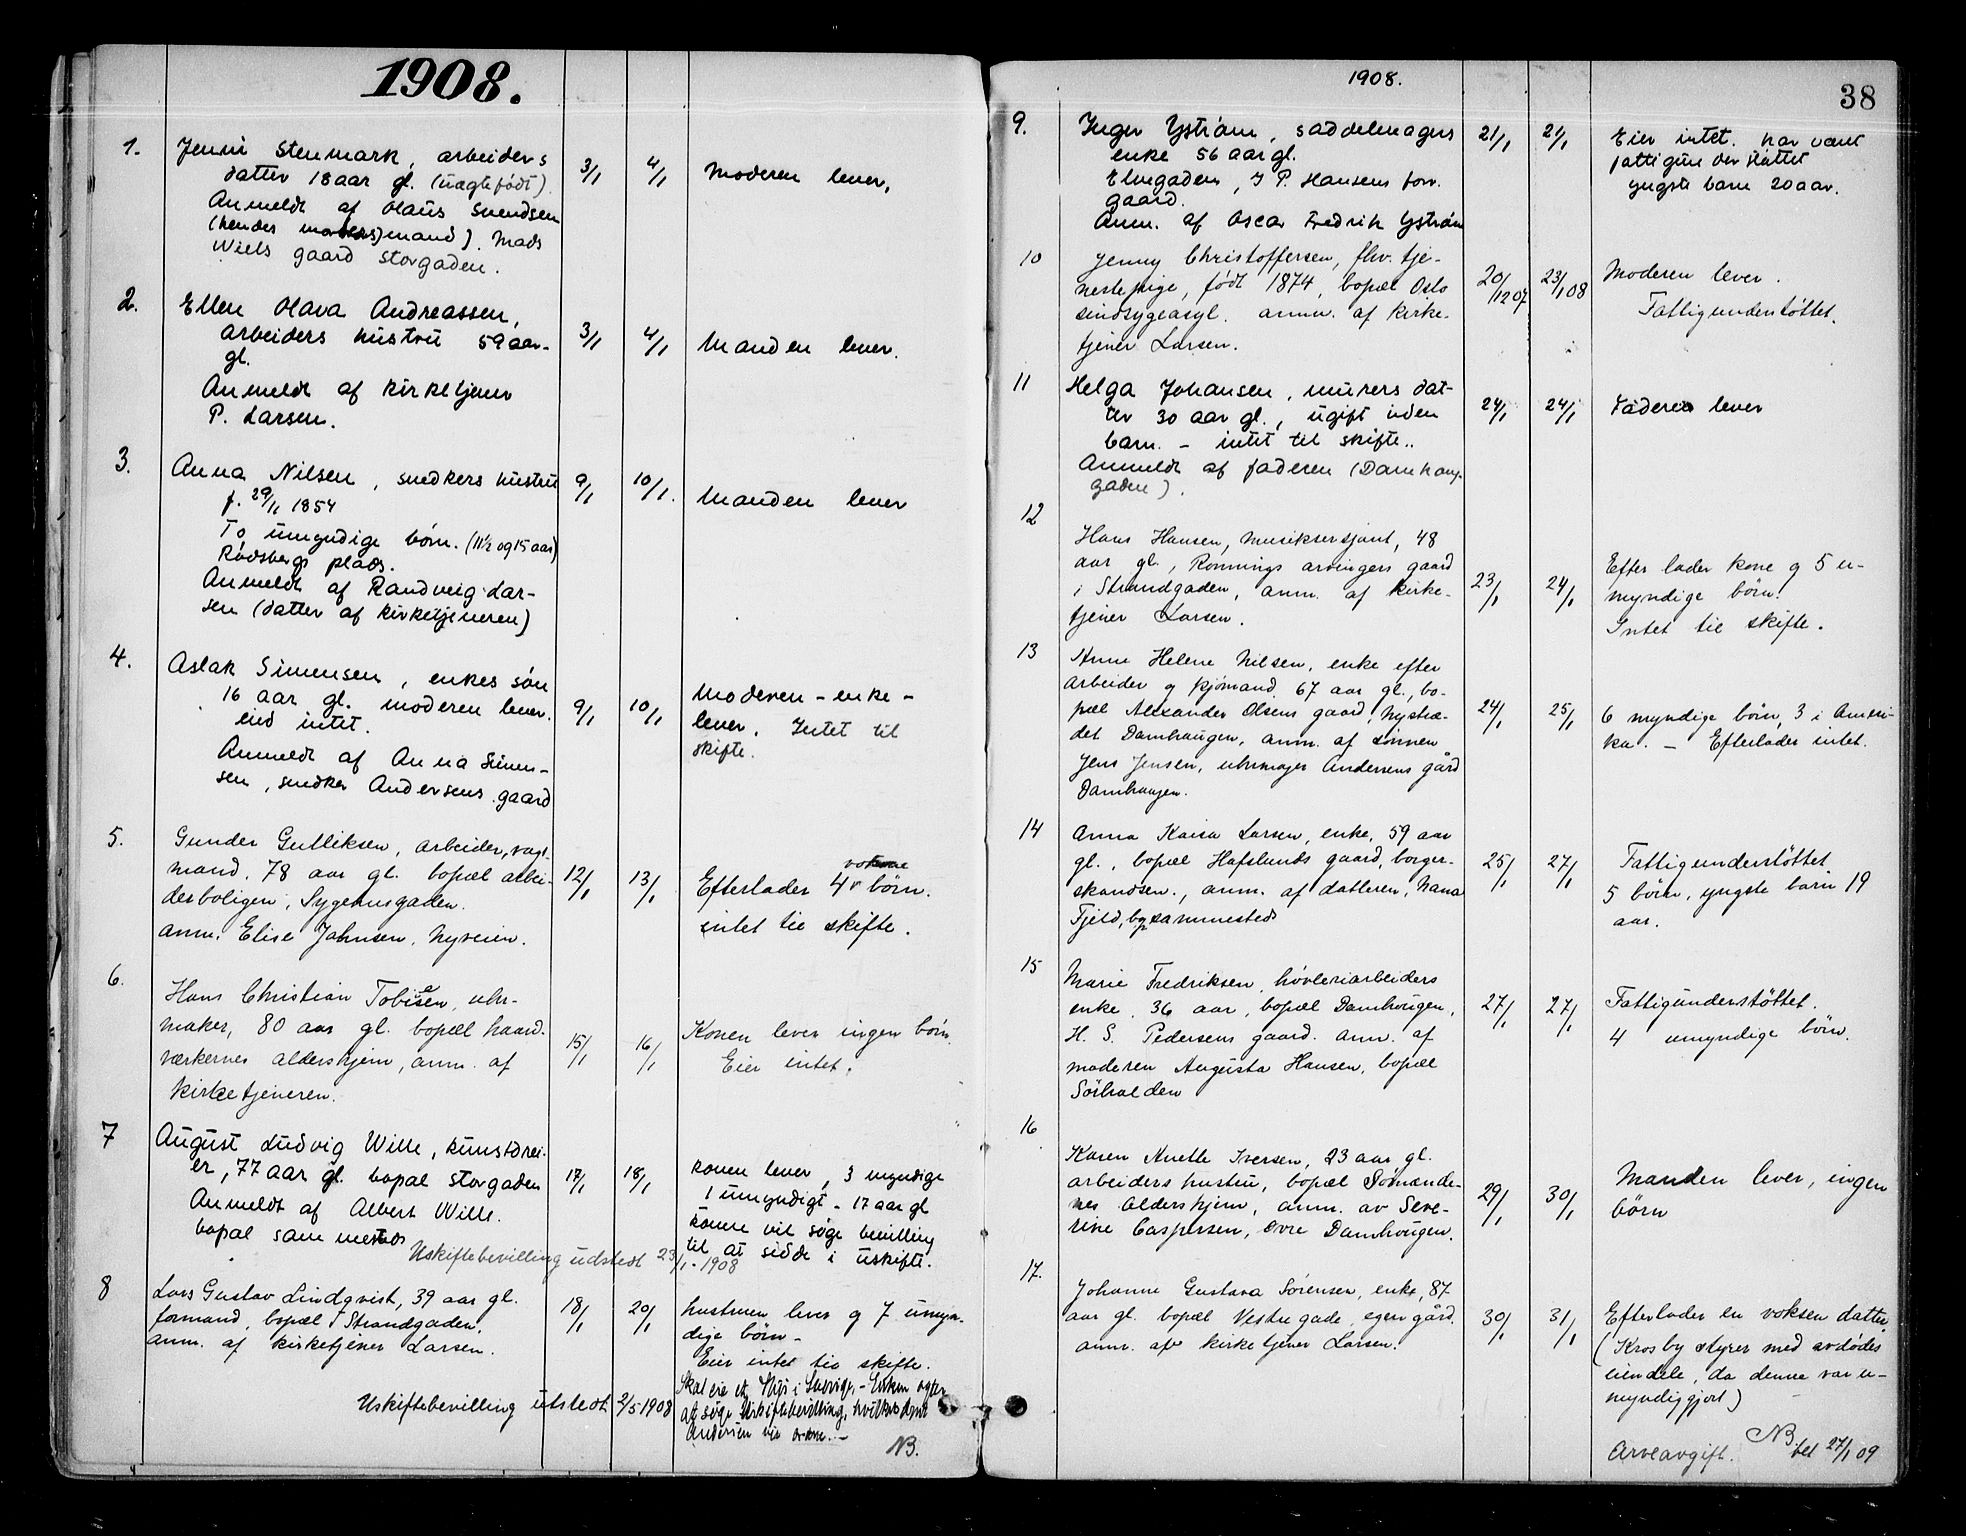 1908.
1. Jenni Stenmark, arbeiders 3/1 4/1 Moderen lever,
datter 18 aar gl. (uægte født).
Anmeldt af Olaus Svendsen
(hendes mand). Mads
Wiels gaard Storgaden.
2. Ellen Olava Andreassen, 3/1 4/1 Manden lever.
arbeiders hustru 59 aar
gl.
Anmeldt af kirketjener
P. Larsen.
3. Anna Nilsen, snedkers hustru 9/1 10/1. Manden lever
f. 29/11 1854
To umyndige børn. (11½ og 15 aar)
Rødsbergs plads.
Anmeldt af Randveig Lar-
sen (datter af kirketjeneren)
4. Aslak Simensen, enkes søn 9/1 10/1 Moderen - enke -
16 aar gl. moderen lever. lever. Intet til
eied intet. skifte.
Anmeldt af Anna Simen-
sen, snedker Andersens gaard
5. Gunder Gulliksen, arbeider, vagt- 12/1 13/1 Efterlader 4 voksne børn.
mand. 78 aar gl. bopæl arbei- intet til skifte.
derboligen, Sygehusgaden.
anm. Elise Johnsen, Nyveien.
6. Hans Christian Tobiesen, uhr- 15/1 16/1 Konen lever ingen børn
maker, 80 aar gl. bopæl haand- Eier intet.
værkernes aldershjem, anm. af
kirketjeneren.
7 August Ludvig Wille, kunstdrei- 17/1 18/1 konen lever, 3 myndige
er, 77 aar gl. bopæl Storgaden 1 umyndigt - 17 aar gl
Anmeldt af Albert Wille. konen vil søge bevilling
bopæl samme steds til at sidde i uskifte.
Uskiftebevilling udstedt 23/1 - 1908
8 Lars Gustav Lindqvist, 39 aar gl. 18/1 20/1 hustruen lever og 7 umyn-
formand, bopæl Strandgaden, dige børn -
anm. af kirketjener Larsen. Eier intet til skifte.
Skal eie et Skjøi i Sverige. - Enken agter
at søge Uskiftebevilling, hvilket
Andersen vil ordne. -
Uskiftebevilling utstedt 2/5 1908
NB.
1908.
38
9. Inger Ystrøm, saddelmagers 21/1 21/1 Eier intet. har været
enke 56 aar gl. fattigunderstøttet
Elvegaden, J P. Hansens forr. yngste barn 20 aar.
gaard.
Anm. af Oscar Fredrik Ystrøm
10 Jenny Christoffersen, fhv. tje- 20/12 07 23/1 08 Moderen lever.
nestepige, født 1874, bopæl Oslo Fattigunderstøttet.
sindsygeasyl. anm. af kirke-
tjener Larsen.
11 Helga Johansen, murers dat- 24/1 24/1 Faderen lever
ter 30 aar gl., ugift uden
barn. - intet til skifte..
Anmeldt af faderen (Damhaug-
gaden).
12 Hans Hansen, musiksersjant, 48 23/1 24/1 Efterlader kone og 5 u-
aar gl., Rønnings arvingers gaard myndige børn.
i Strandgaden, anm. af kirke- Intet til skifte.
tjener Larsen.
13 Anne Helene Nilsen, enke efter 24/1 25/1 6 myndige børn, 3 i Ameri-
arbeider og kjømand 67 aar gl., bo- ka. - Efterlader intet.
pæl Alexander Olsens gaard, Nystræ-
det Damhaugen, anm. af sønnen
Jens Jensen, uhrmager Andersens gård
Damhaugen.
14 Anna Kaisa Larsen, enke, 59 aar 25/1 27/1 Fattigunderstøttet
gl., bopæl Hafslunds gaard, borger- 5 børn, yngste barn 19
skandsen., anm. af datteren, Nana aar.
Fjeld, bop. sammesteds
15 Marie Fredriksen, høvleriarbeiders 27/1 27/1 Fattigunderstøttet.
enke 36 aar, bopæl Damhougen, 4 umyndige børn.
H. S. Pedersens gaard. anm. af
moderen Augusta Hansen, bopæl
Sørhalden
16 Karen Anette Iversen, 23 aar gl. 29/1 30/1 Manden lever, ingen
arbeiders hustru, bopæl Sømænde- børn
nes Aldershjem, anm. av Seve-
rine Caspersen, Øvre Damhougen.
17. Johanne Gustava Sørensen, enke, 87 30/1 31/1 Efterlader en voksen datter
aar gl. bopæl Vestregade, egen gård. (Krosby styrer med avdødes
anm. af kirketjener Larsen. eiendele, da denne var u-
myndiggjort)
NB.
Arveavgift. bet 27/1 09